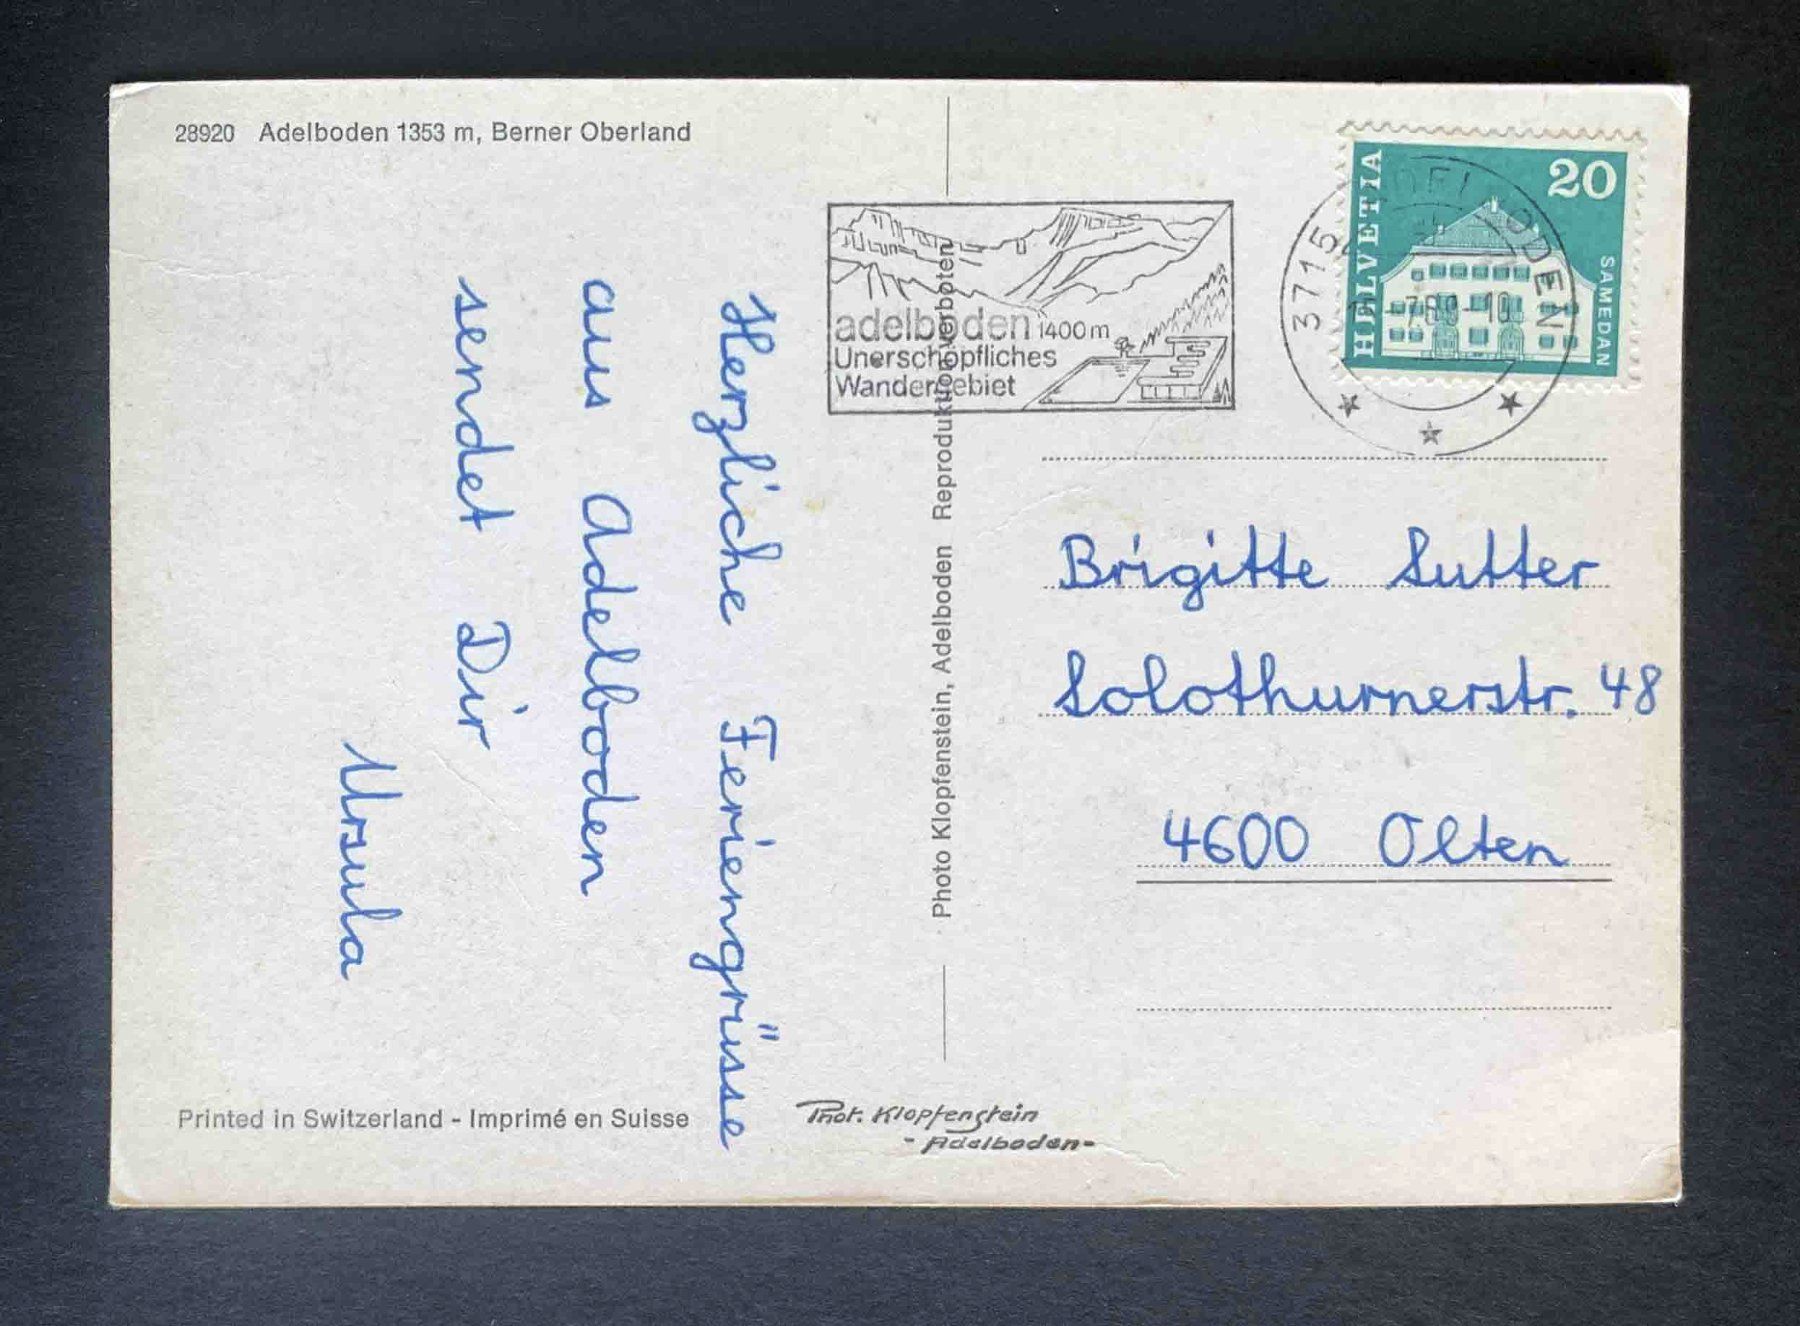 28920 Adelboden 1353 m, Berner Oberland
Herzliche Feriengrüsse
aus Adelboden
sendet Dir
Ursula
Printed in Switzerland - Imprimé en Suisse
Photo Klopfenstein, Adelboden Reproduktion verboten
Phot. Klopfenstein
- Adelboden -
adelboden 1400 m
Unerschöpfliches
Wandergebiet
3715 ADELBODEN
HELVETIA
20
SAMEDAN
Brigitte Sutter
Solothurnerstr. 48
4600 Olten